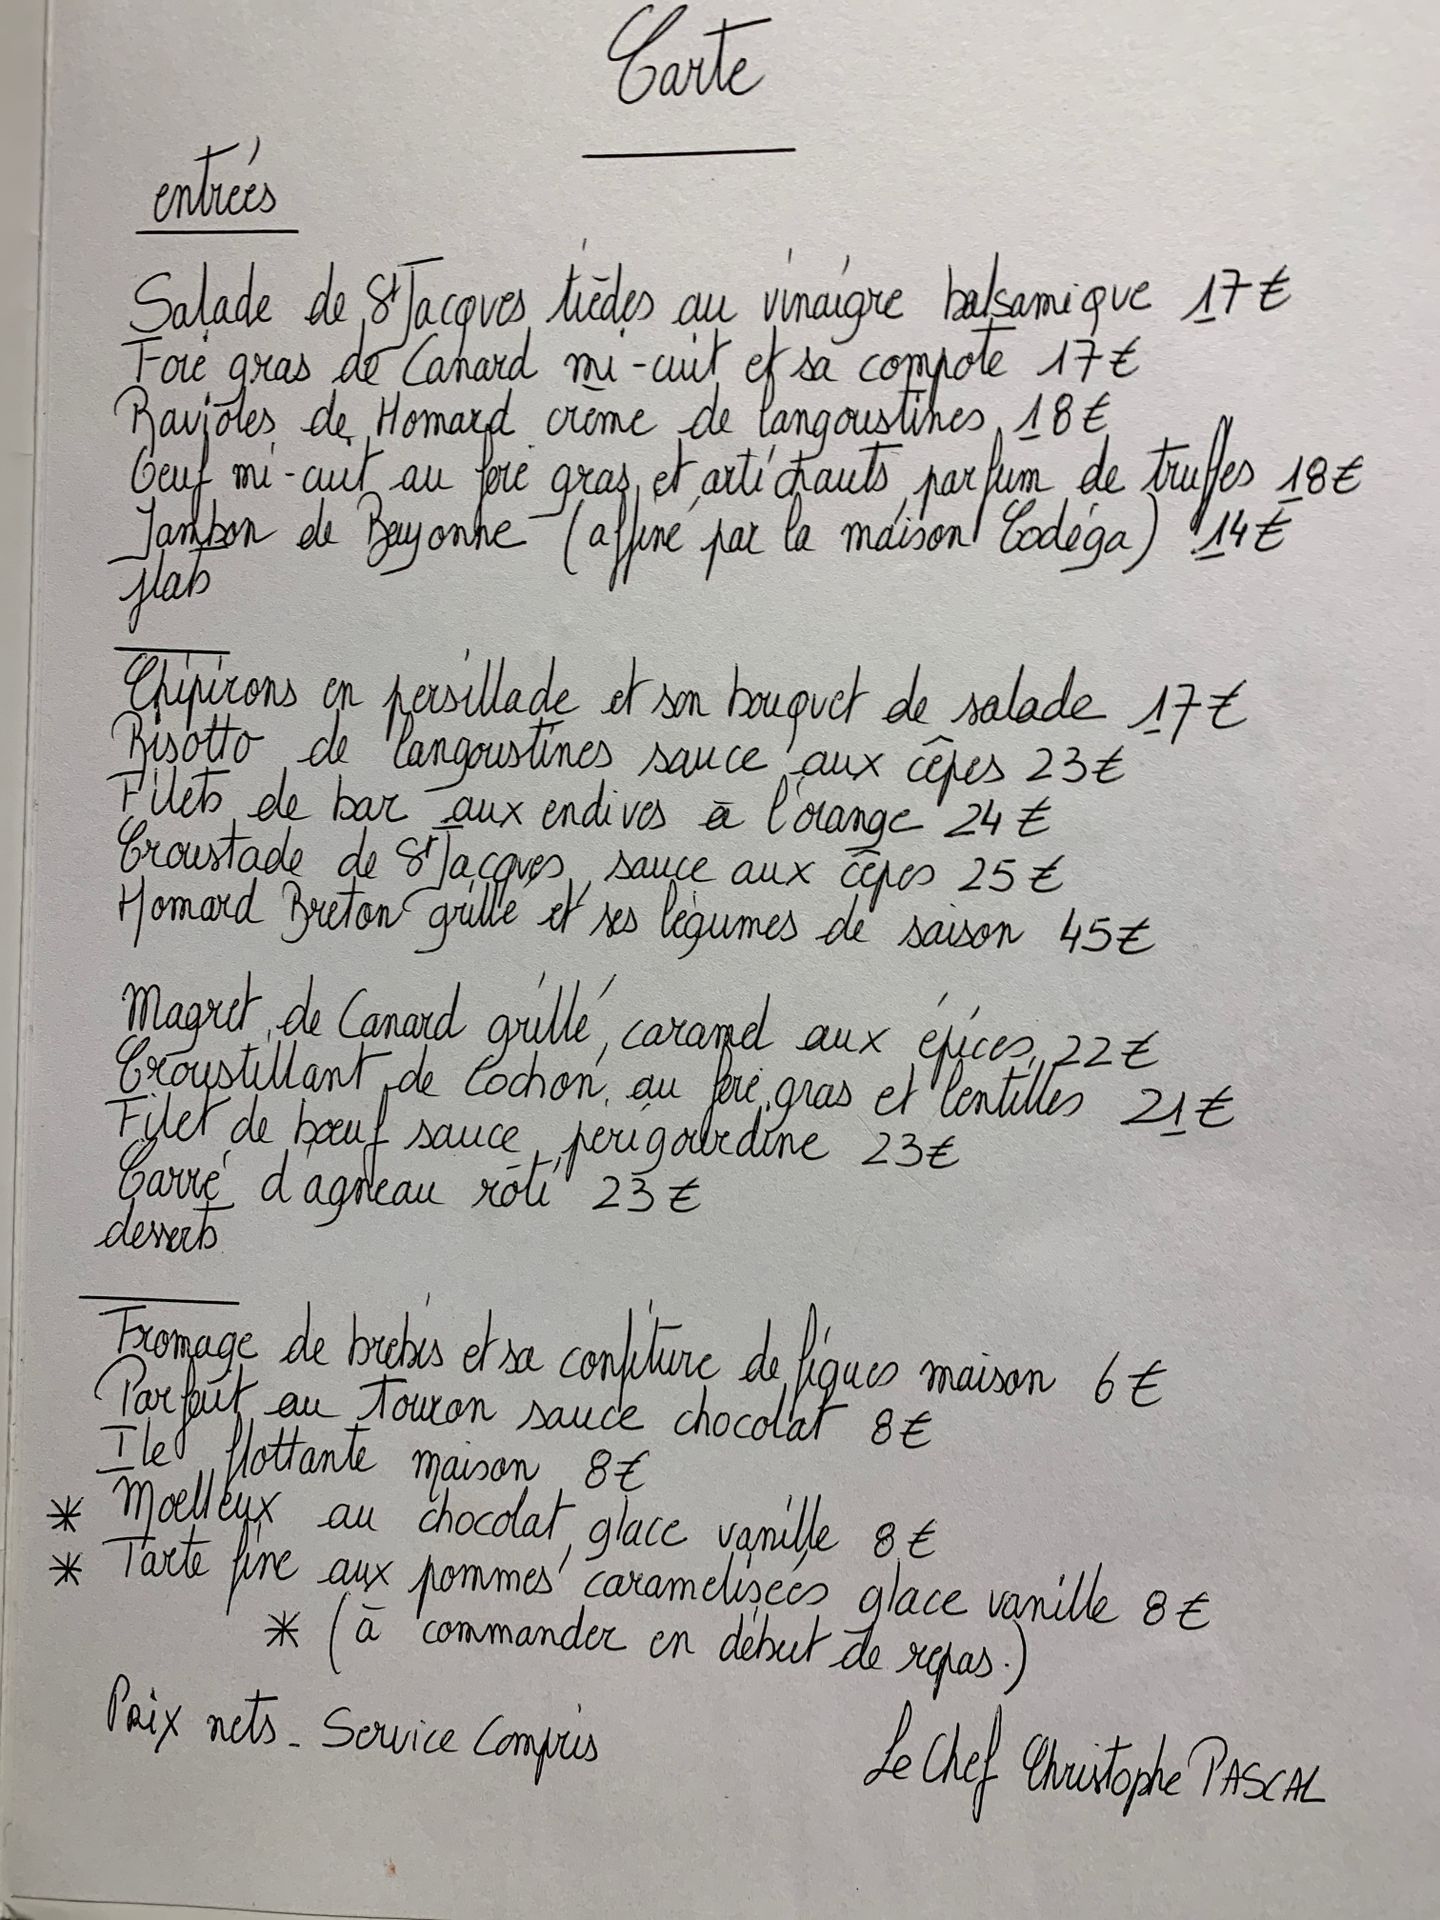 Carte
entrées
Salade de St Jacques tièdes au vinaigre balsamique 17€
Foie gras de Canard mi-cuit et sa compote 17€
Ravioles de Homard crème de langoustines 18€
Oeuf mi-cuit au foie gras et artichauts parfum de truffes 18€
Jambon de Bayonne (affiné par la maison Codéga) 14€
plats
Chipirons en persillade et son bouquet de salade 17€
Risotto de langoustines sauce aux cêpes 23€
Filets de bar aux endives à l'orange 24€
Croustade de St Jacques sauce aux cêpes 25€
Homard Breton grillé et ses légumes de saison 45€
Magret de Canard grillé, caramel aux épices 22€
Croustillant de Cochon au foie gras et lentilles 21€
Filet de bœuf sauce périgourdine 23€
Carré d'agneau rôti 23€
desserts
Fromage de brebis et sa confiture de figues maison 6€
Parfait au Touron sauce chocolat 8€
Ile flottante maison 8€
* Moelleux au chocolat glace vanille 8€
* Tarte fine aux pommes caramelisées glace vanille 8€
* (à commander en début de repas.)
Prix nets - Service Compris
Le Chef Christophe PASCAL